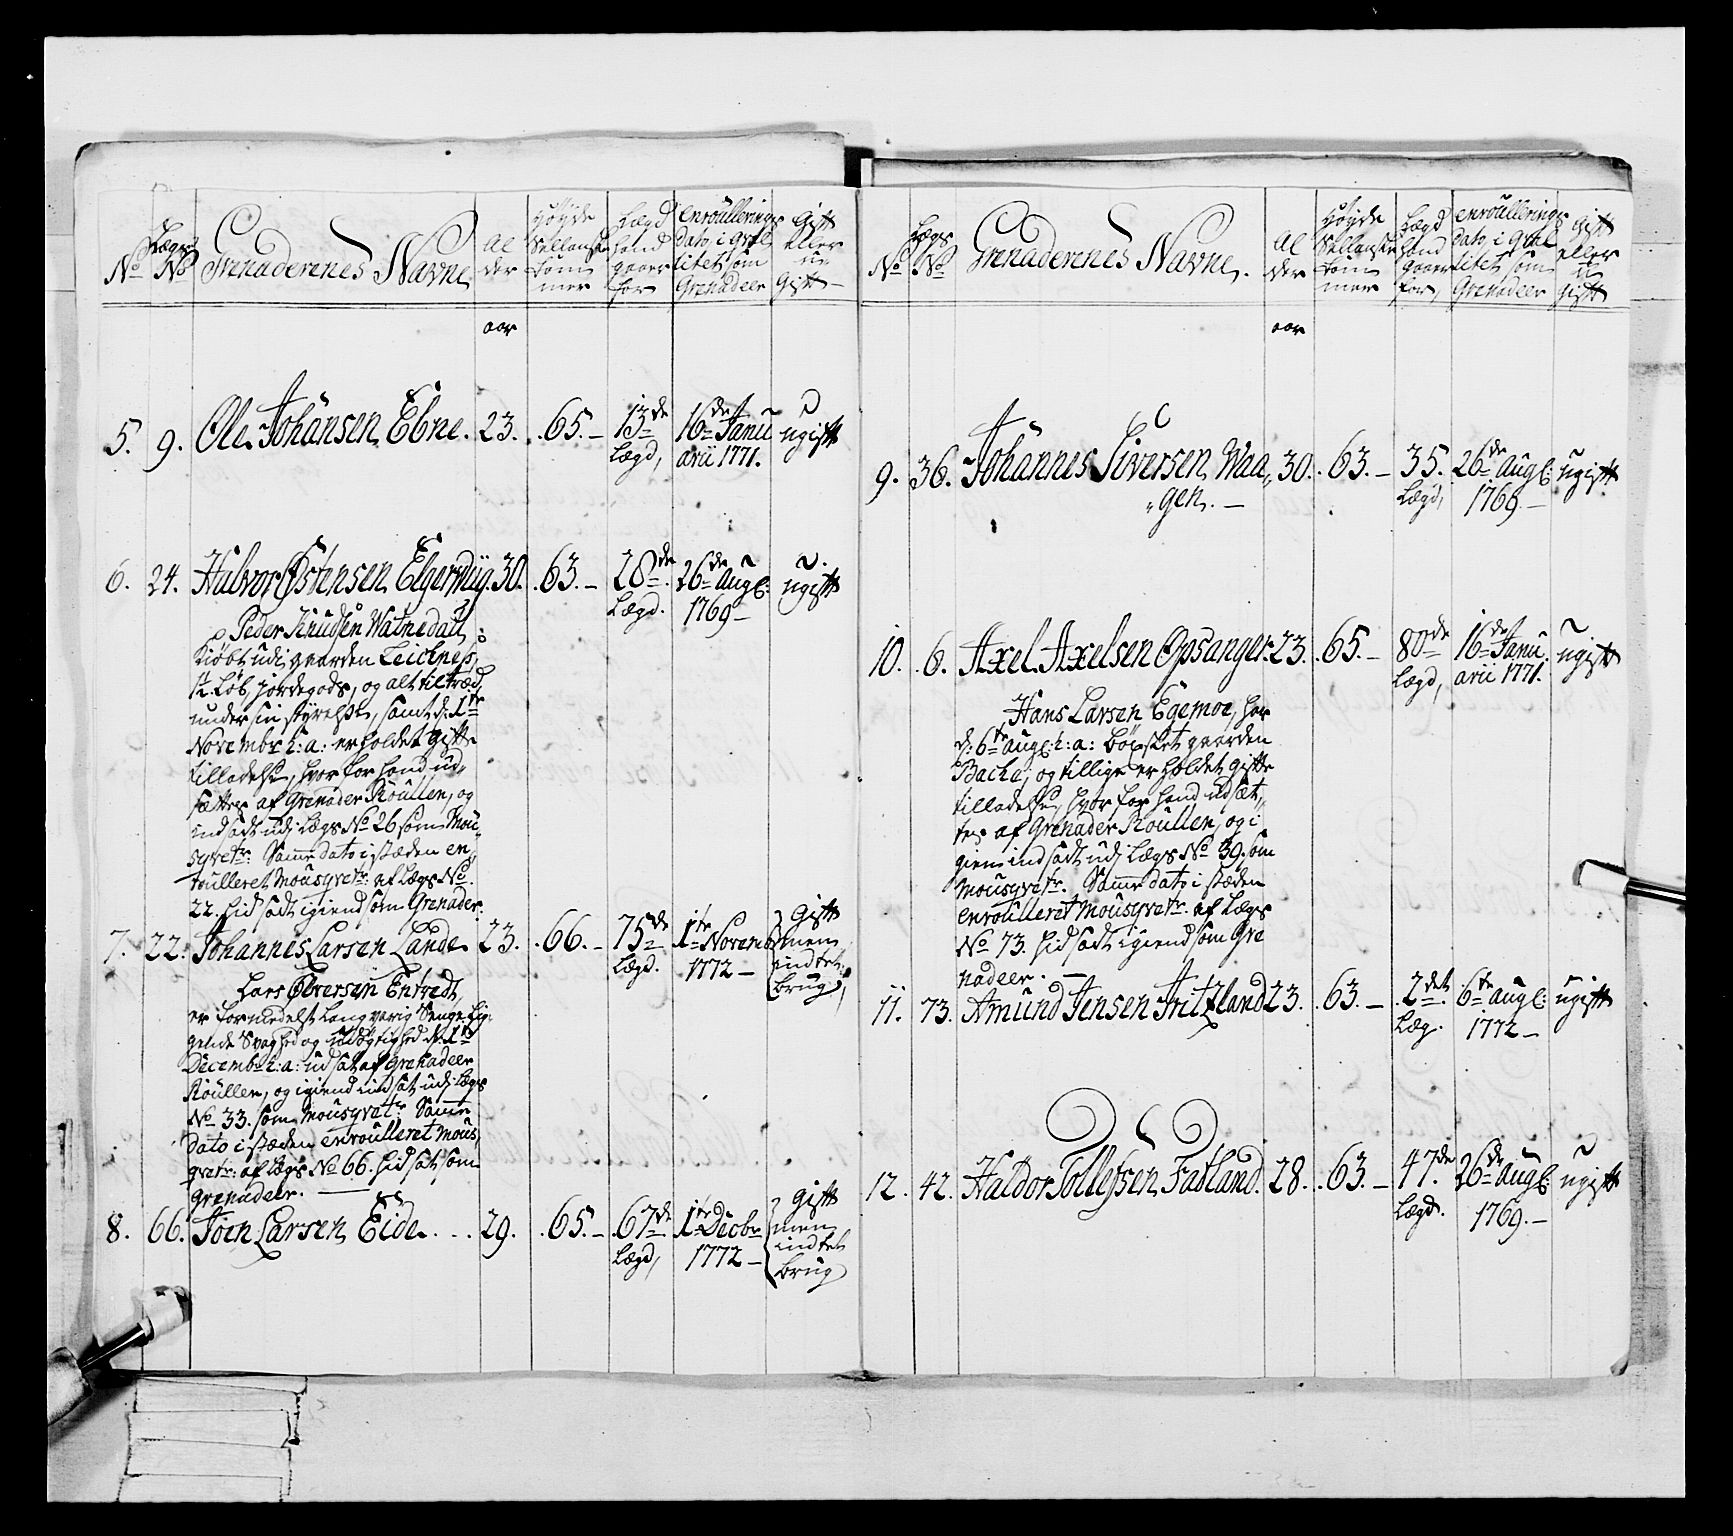 No
Lægs No
Grenaderenes Navne
Al der
Høyde Sellandske Tom mer
Lægd hand gaaer for
enroullerings dato i qvalitet som Grenadeer
Gift eller u- Gift
aar
5. 9. Ole Johansen Ebne. 23. 65. 13de Lægd, 16de Janu arii 1771. ugift
6. 24. Halvor Østensen Elgernüg. 30. 63. 28de Lægd. 26de Augl: 1769 ugift
Peder Knudsen Watnedall
Kiøbt udi gaarden Leichnes,
1½ Løb jordegods, og alt tiltræd
under sin styrelse, samt d: 1te
Novembr h: a: erholdet gifte
tilladelse, hvorfor hand ud-
sættes af Grenader Roullen, og
indsadt udi Lægs No 26 som Mou-
sqvetr: Samme dato i stæden en-
roulleret Mousqvetr: af Lægs No
22. hid sadt igiend som Grenader:
7. 22. Johannes Larsen Lande 23. 66. 75de Lægd. 1te Novemb 1772 Gift men indtet brug
Lars Olversen Entredt
er formedelst Langvarig Senge Lig-
gende Svaghed og udøgtighed d: 1te
Decembr h: a: udsat af Grenadeer
Roullen, og igiend indsat udi Lægs
No 33. som Mousqvetr: Samme
dato i stæden enroulleret Mous
qvetr: af Lægs No 66. hid sat som
Grenadeer.
8. 66. Joen Larsen Eide 29. 65. 67de Lægd, 1te Decbr 1772 Gift men indtet brug
No
Lægs No
Grenaderenes Navne.
Al der
Høyde Sellandske Tom mer
Lægd hand gaaer for,
enroullerings dato i qvalitet som Grenadeer
Gift eller u Gift
aar
9. 36. Johannes Siversen Waa- 30. 63. 35. Lægd, 26de Augl: 1769. ugift
gen.
10. 6. Axel Axelsen Opsanger 23. 65. 80de Lægd, 16de Janu arii 1771. ugift
Hans Larsen Egemoe, har
d: 6te Augl: h: a: bøxlet gaarden
Bache, og tillige erholdet gifte
tilladelse, hvorfor hand udsæt-
tes af Grenader Roullen, og i
gien indsadt udi Lægs No 39. som
Mousqvetr. Samme dato i stæden
enroulleret Mousqvetr. af Lægs
No 73. hid sadt igiend som Gre
nadeer.
11. 73. Amund Jensen Fritzland 23. 63. 2det Læg. 6te Augl: 1772 ugift
12. 42. Haldor Tollefsen Fatland. 28. 63. 47de Lægd. 26de Augl: 1769. ugift